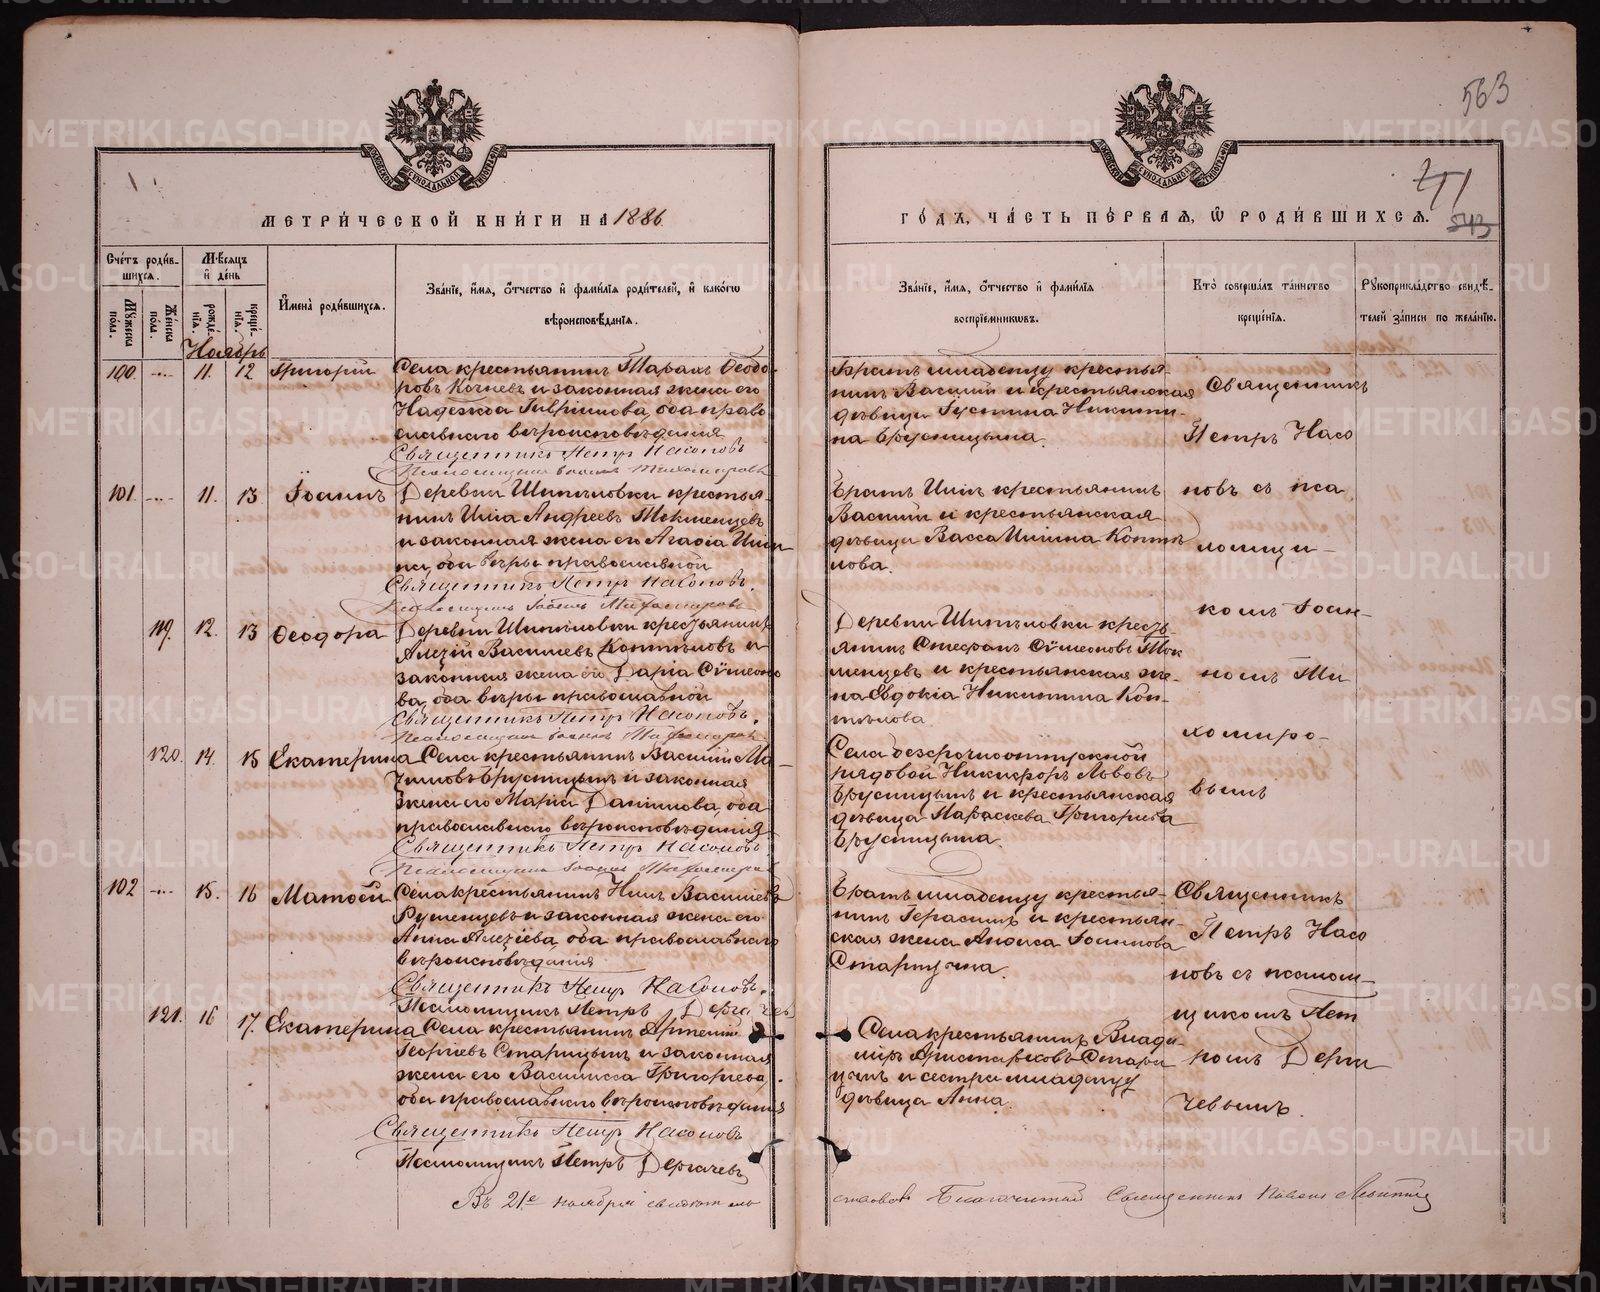 563
541
543
МЕТРИ́ЧЕСКОЙ КНИ́ГИ НА 1886
ГО́ДЪ, ЧА́СТЬ ПЕ́РВАЯ, Ѡ РОДИ́ВШИХСЯ.
Сче́тъ роди́в-
шихся.
Мѣ́сяцъ
и де́нь
Му́жеска по́ла.
Же́нска по́ла.
рожде́-
нія.
креще́-
нія.
И҆мена̀ роди́вшихся.
Зва́ніе, и҆́мя, ѻ҆́тчество и҆ фами́лїя роди́телей, и҆ како́гѡ
вѣроисповѣ́данїя.
Зва́нїе, и҆́мя, ѻ҆́тчество и҆ фами́лїя
воспрїе́мникѡвъ.
Кто̀ соверша́лъ та́инство
креще́нїя.
Рꙋкоприкла́дство свидѣ́-
телей за́писи по жела́нїю.
Ноябрь
100. -..- 11. 12 Григорій
Села крестьянинъ Тарахъ Ѳеодо-
ровъ Кочневъ и законная жена его
Надежда Гавриилова, оба право
славнаго вѣроисповѣданія
Священникъ Петръ Насоновъ
Псаломщикъ Іоаннъ Тихомировъ
Братъ младенцу крестья-
нинъ Василій и крестьянская
дѣвица Іустина Никити-
на Брусницына.
Священникъ
Петръ Насо
101. -..- 11. 13. Іоаннъ
Деревни Шипѣловки крестья-
нинъ Илія Андреевъ Токменцевъ
и законная жена его Агафія Иліи
на, оба вѣры православной
Священникъ Петръ Насоновъ.
Псаломщикъ Іоаннъ Тихомировъ
Братъ Иліи крестьянинъ
Василій и крестьянская
дѣвица Васса Иліина Коптѣ
лова.
новъ съ пса
ломщи-
комъ Іоан-
119. 12. 13 Ѳеодора
Деревни Шипѣловки крестьянинъ
Алексій Васильевъ Коптѣловъ и
законная жена его Дарія Сѵмеоно
ва, оба вѣры православной
Священникъ Петръ Насоновъ.
Псаломщикъ Іоаннъ Тихомировъ
Деревни Шипѣловки кресть-
янинъ Стефанъ Сѵмеоновъ Ток
менцевъ и крестьянская же-
на Евдокія Никитина Коп-
тѣлова.
номъ Ти
хомиро-
вымъ
120. 14. 15 Екатерина
Села крестьянинъ Василій Ма-
Брусницынъ и законная
жена его Марія Даніилова, оба
православнаго вѣроисповѣданія
Священникъ Петръ Насоновъ
Псаломщикъ Іоаннъ Тихомировъ
Села безсрочноотпускной
рядовой Никифоръ Львовъ
Брусницынъ и крестьянская
дѣвица Параскева Григорьева
Брусницына.
102 -..- 15. 16 Матѳей
Села крестьянинъ Нилъ Васильевъ
Рушенцевъ и законная жена его
Анна Алексіева, оба православнаго
вѣроисповѣданія
Священникъ Петръ Насоновъ.
Псаломщикъ Петръ Дергачевъ
Братъ младенцу крестья-
нинъ Герасимъ и крестьян-
ская жена Анфиса Іоаннова
Старицына.
Священникъ
Петръ Насо
новъ съ псалом-
щикомъ Пет
121. 16 17. Екатерина
Села крестьянинъ Артемій
Георгіевъ Старицынъ и законная
жена его Василисса Григорьева,
оба православнаго вѣроисповѣданія
Священникъ Петръ Насоновъ
Псаломщикъ Петръ Дергачевъ
Села крестьянинъ Влади-
міръ Аристарховъ Стари
цынъ и сестра младенцу
дѣвица Анна.
ромъ Дерга
чевымъ.
Въ 21е ноября свидѣтель
ствовалъ Благочинный Священникъ Павелъ
METRIKI.GASO-URAL.RU